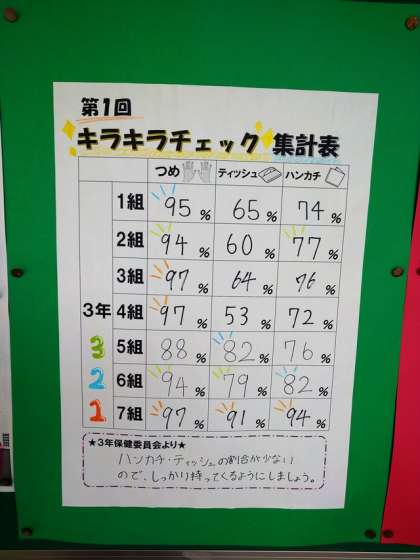 第1回
キラキラチェック 集計表
つめ ティッシュ ハンカチ
3年
1組 95% 65% 74%
2組 94% 60% 77%
3組 97% 64% 76%
4組 97% 53% 72%
3 5組 88% 82% 76%
2 6組 94% 79% 82%
1 7組 97% 91% 94%
★3年保健委員会より★
ハンカチ・ティッシュの割合が少ない
ので、しっかり持ってくるようにしましょう。